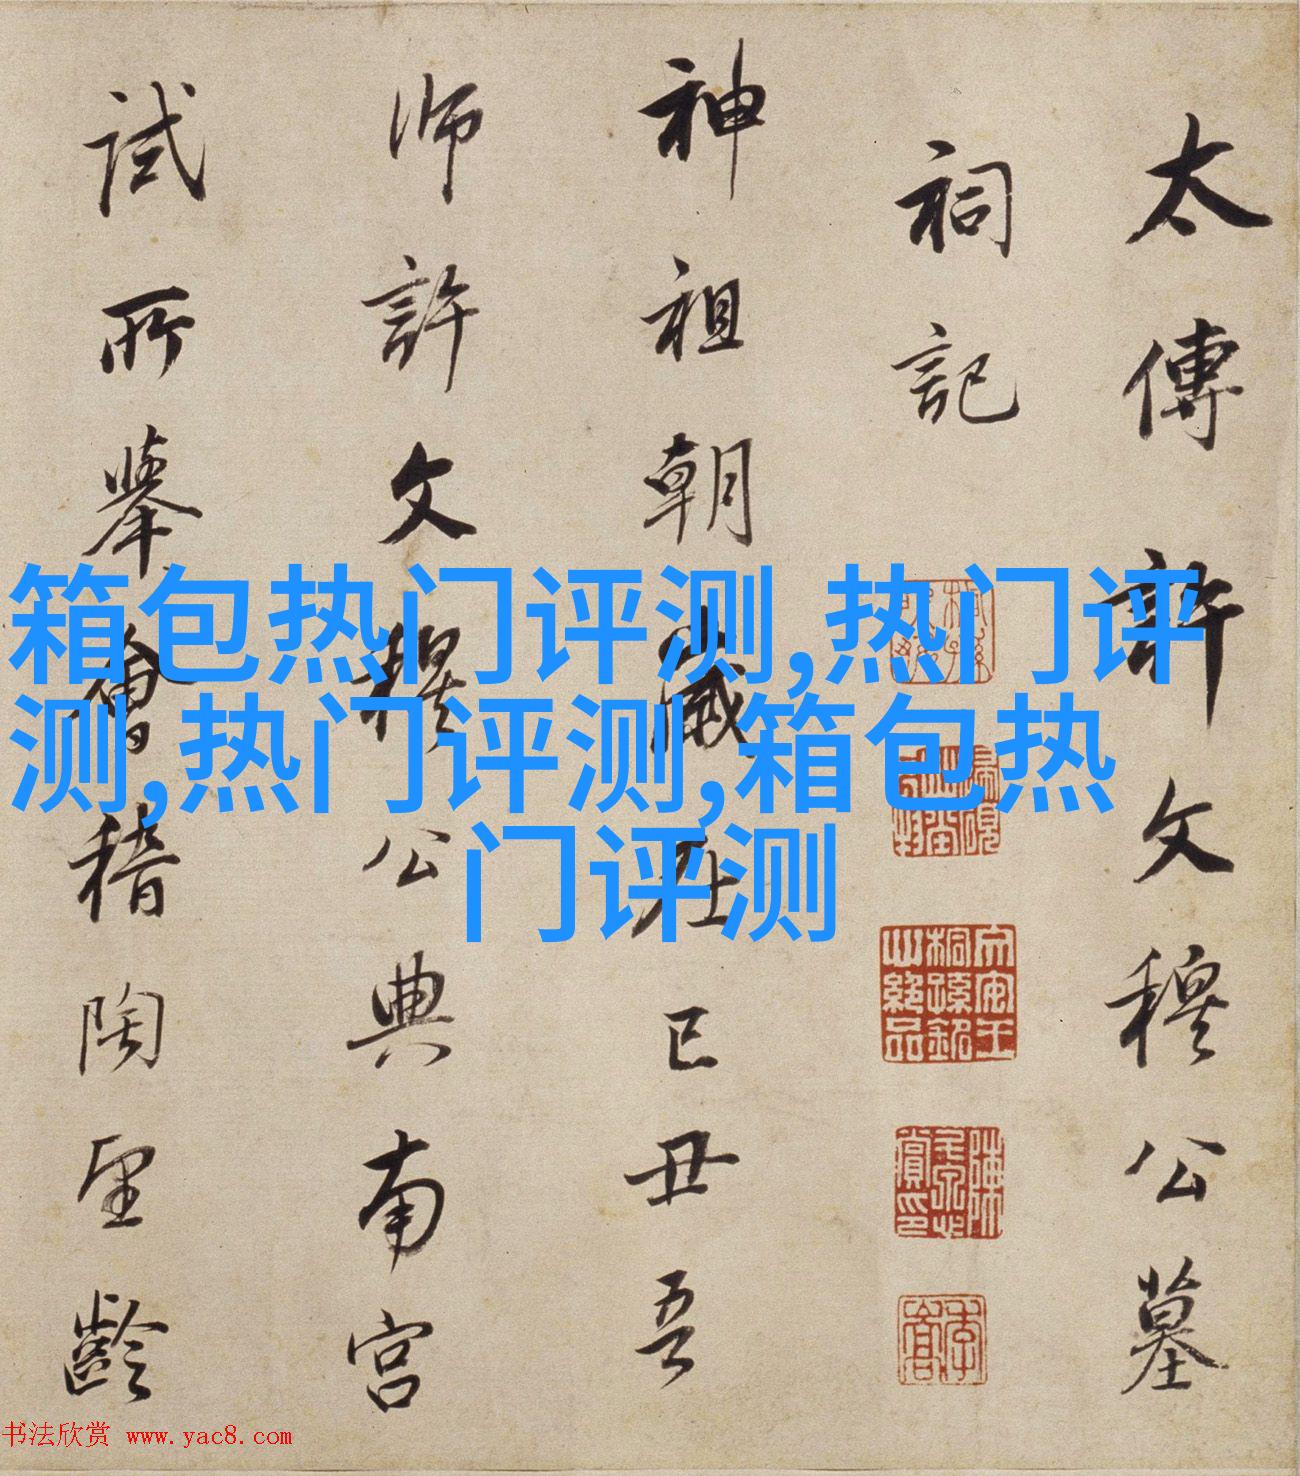 太傅許文穆公墓
祠記
神祖朝歲在己丑吾
師許文穆公典南宮
試所舉會稽陶望齡
箱包热门评测,热门评
测,热门评测,箱包热
门评测
书法欣赏 www.yac8.com